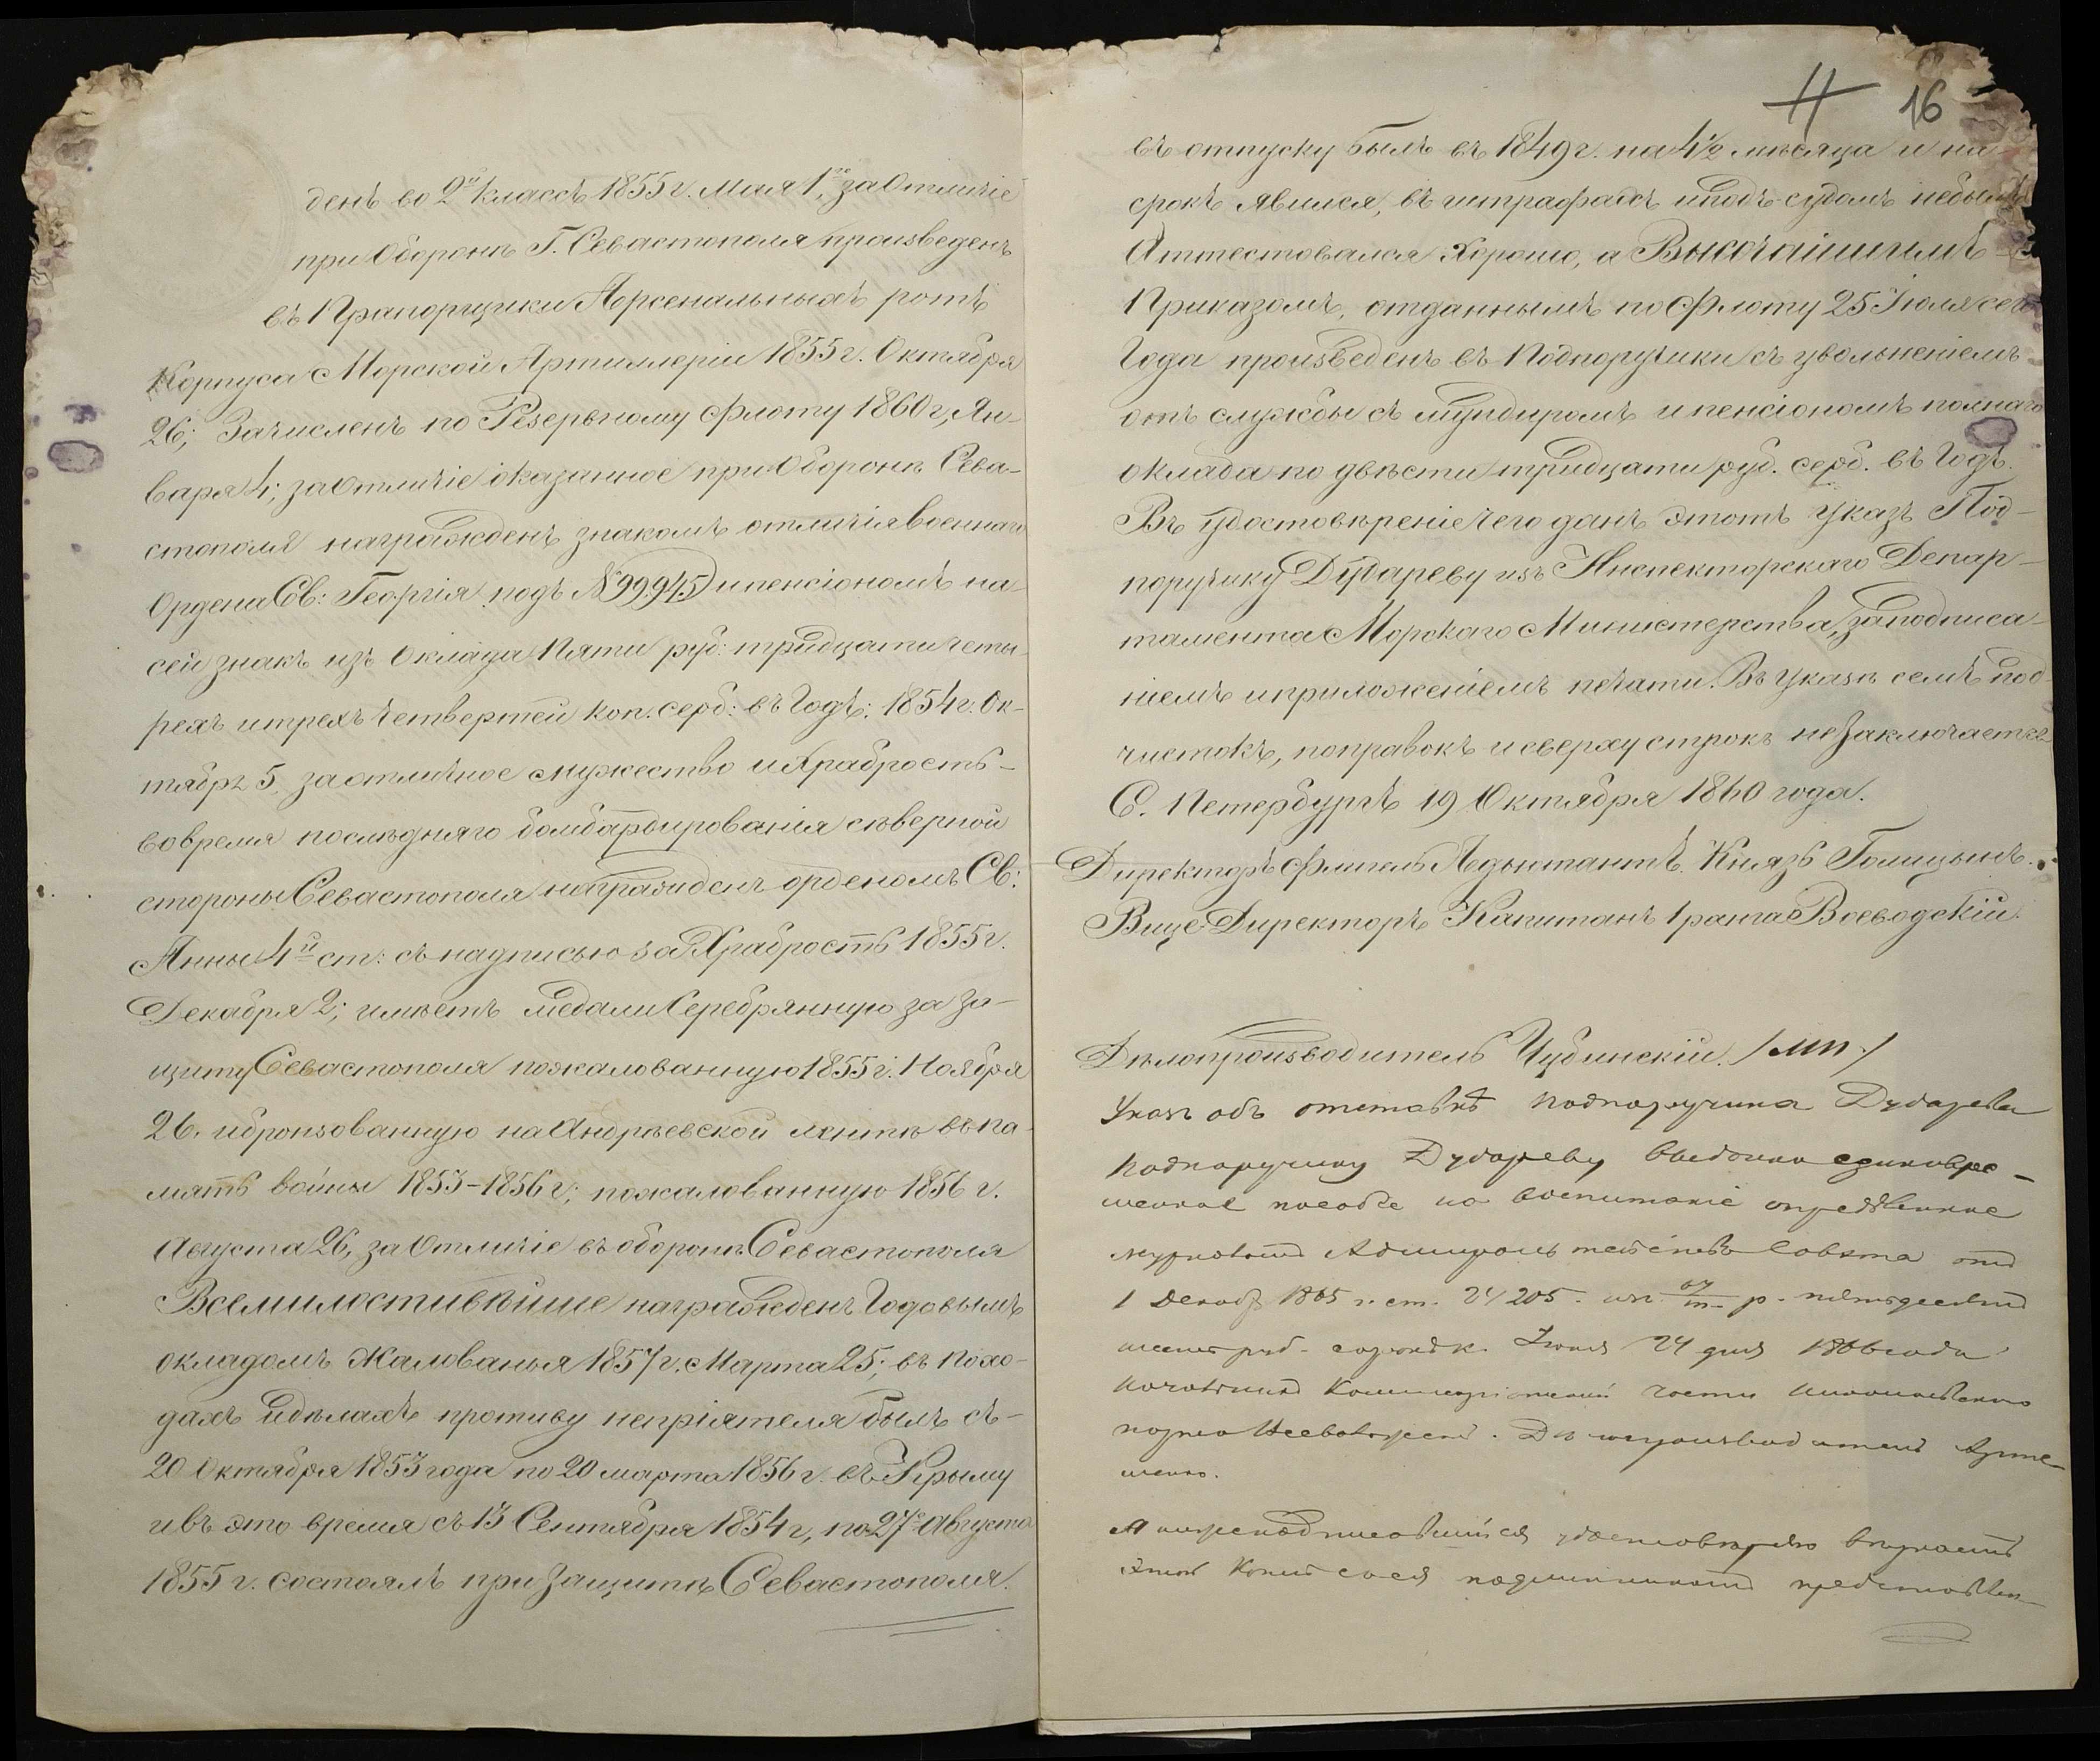 денъ во 2й классъ 1855 г. Мая 1го, за Отличіе
при Оборонѣ Г. Севастополя произведенъ
въ Прапорщики Арсенальныхъ ротъ
Корпуса Морской Артиллеріи 1855 г. Октября
26; Зачисленъ по Резервному флоту 1860 г, Ян-
варя 4; за Отличіе оказанное при Оборонѣ Сева-
стополя награжденъ знакомъ отличія военнаго
Ордена Св: Георгія подъ № 99.945) и пенсіономъ на
сей знакъ изъ Оклада Пяти руб: тридцати четы-
рехъ и трехъ четвертей коп. серб: въ Годъ: 1854 г. Ок-
тября 5, за отличное мужество и Храбрость-
во время послѣдняго бомбардированія сѣверной
стороны Севастополя награжденъ орденомъ Св:
Анны 4й ст: съ надписью за Храбрость 1855 г.
Декабря 2; имѣетъ медали Серебрянную за За-
щиту Севастополя пожалованную 1855 г. Ноября
26. и бронзованную на Андрѣевской лентѣ въ па-
мять войны 1853-1856 г; пожалованную 1856 г.
Августа 26, за Отличіе въ оборонѣ Севастополя
Всемилостивѣйше награжденъ Годовымъ
окладомъ Жалованья 1857 г. Марта 25; въ Похо-
дахъ и дѣлахъ противу непріятеля былъ съ-
20 Октября 1853 года по 20 марта 1856 г. въ Крыму
и въ это время съ 13 Сентября 1854 г, по 27е Августа
1855 г. состоялъ при Защитѣ Севастополя.
11 16
въ отпуску былъ въ 1849 г. на 4½ мѣсяца и на
срокъ явился, въ штрафахъ и подъ судомъ небылъ
Аттестовался Хорошо, а Высочайшимъ
Приказомъ, отданнымъ по Флоту 25 Іюля сего
Года произведенъ въ Подпоручики съ увольненіемъ
отъ службы съ мундиромъ и пенсіономъ полнаго
оклада по двѣсти тридцати руб. серб. въ Годъ.
Въ удостовѣреніе чего данъ этотъ Указъ Под-
поручику Дудареву изъ Инспекторскаго Депар-
тамента Морскаго Министерства, за подписа-
ніемъ и приложеніемъ печати. Въ Указѣ семъ под-
чистокъ, поправокъ и сверху строкъ не Заключается
С. Петербургъ 19 Октября 1860 года.
Директоръ Флигель Адъютантъ Князь Голицынъ.
Вице-Директоръ Капитанъ 1 ранга Воеводскій.
Дѣлопроизводитель Чубинскій. /МП./
Указъ объ отставкѣ подпоручика Дударева
Подпоручику Дудареву выдано единовре-
менное пособіе на воспитаніе опредѣленное
Адмиралтействъ Совѣта отъ
1 Декаб 1865 г. ст. 24205. р. пятьдесятъ
руб. Іюня 24 дня 1866 года
части Николаевскаго
порта
удостовѣряю вѣрность
этой Копіи